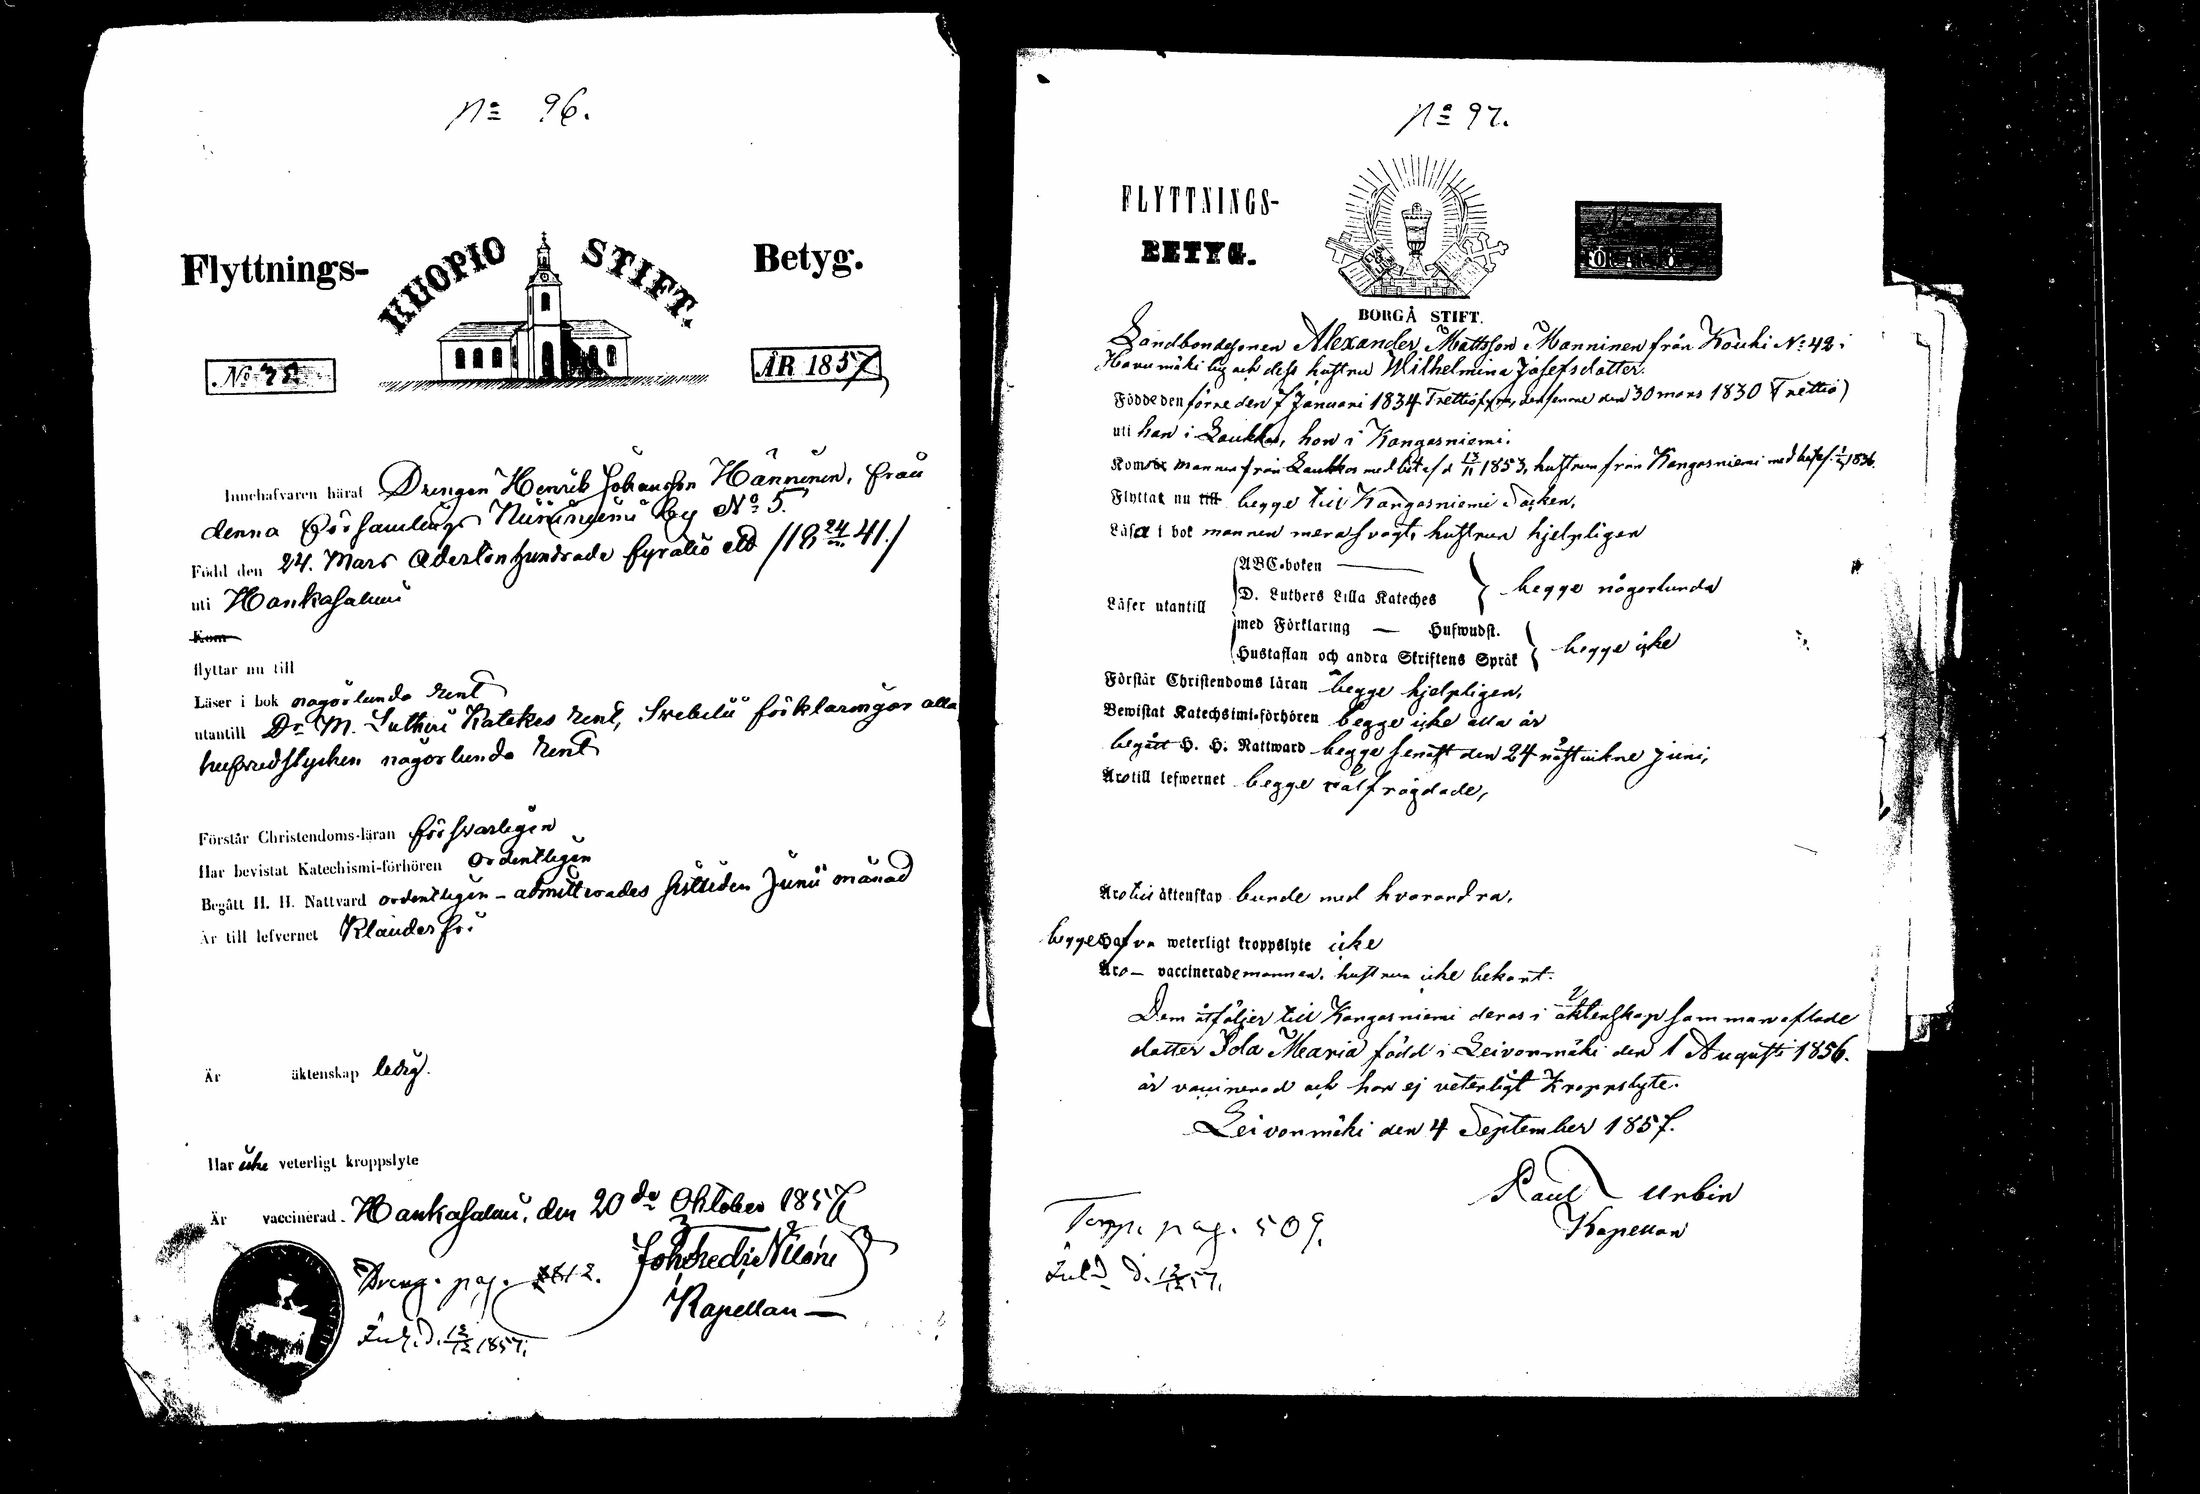 Nº 96.
Flyttnings-
KUOPIO STIFT.
Betyg.
ÅR 1857
Innehafvaren häraf Drengen Henrik Johansson Hänninen, från
denna Församlings Niinimäki by Nº 5.
Född den 24. Mars Adertonhundrade fyratio ett /18 24/III 41./
uti Hankasalmi
Kom
flyttar nu till
Läser i bok någorlunda rent
utantill Dr. M. Lutheri Katekes rent, Svebelii förklaringar alla
hufvudstycken någorlunda rent
Förstår Christendoms-läran försvarligen
Har bevistat Katechismi-förhören ordentligen
Begått H. H. Nattvard ordentligen - admitterades sistliden Junii månad
Är till lefvernet Klanderfri
Är äktenskap ledig.
Har icke veterligt kroppslyte
Är vaccinerad. Hankasalmi, den 20de Oktober 1857
Kapellan
Dreng. pag. 812.
Inl. d. 12/12 1857.
Nº 97.
FLYTTNINGS-
BETYG.
BORGÅ STIFT.
Landbondesonen Alexander Mattsson Manninen från Kouhi Nº 42 i
Havumäki by och dess hustru Wilhelmina Josefsdotter.
Födde den förre den 7 Januari 1834 Trettiofyra, den senare den 30 mars 1830 (Trettio)
uti han i Laukkas, hon i Kangasniemi.
Kommo mannen från Laukkas med bet. af d 13/11 1853, hustrun från Kangasniemi med bet. af
Flyttar nu till begge till Kangasniemi Socken,
Läsa i bok mannen mera svagt, hustrun hjelpligen
Läser utantill
ABC-boken
D. Luthers Lilla Kateches
begge någorlunda
med Förklaring — Hufwudst.
Hustaflan och andra Skriftens Språk
begge icke
Förstår Christendoms läran begge hjelpligen,
Bewistat Katechsimi-förhören begge icke alla år
begått H. H. Nattward begge senast den 24 nästvikne juni,
Äro till lefwernet begge välfrägdade,
Äro till äktenskap bunde med hvarandra,
begge Hafva weterligt kroppslyte icke
Äro — vaccinerade mannen, hustrun icke bekant.
Dem åtföljer till Kangasniemi deras i äktenskap sammanaflade
dotter Ida Maria född i Leivonmäki den 1 Augusti 1856.
är vaccinerad och har ej veterligt Kroppslyte.
Leivonmäki den 4 September 1857.
Paul Urbin
Kapellan
Torp. pag. 509.
Inl. d. 12/12 57.